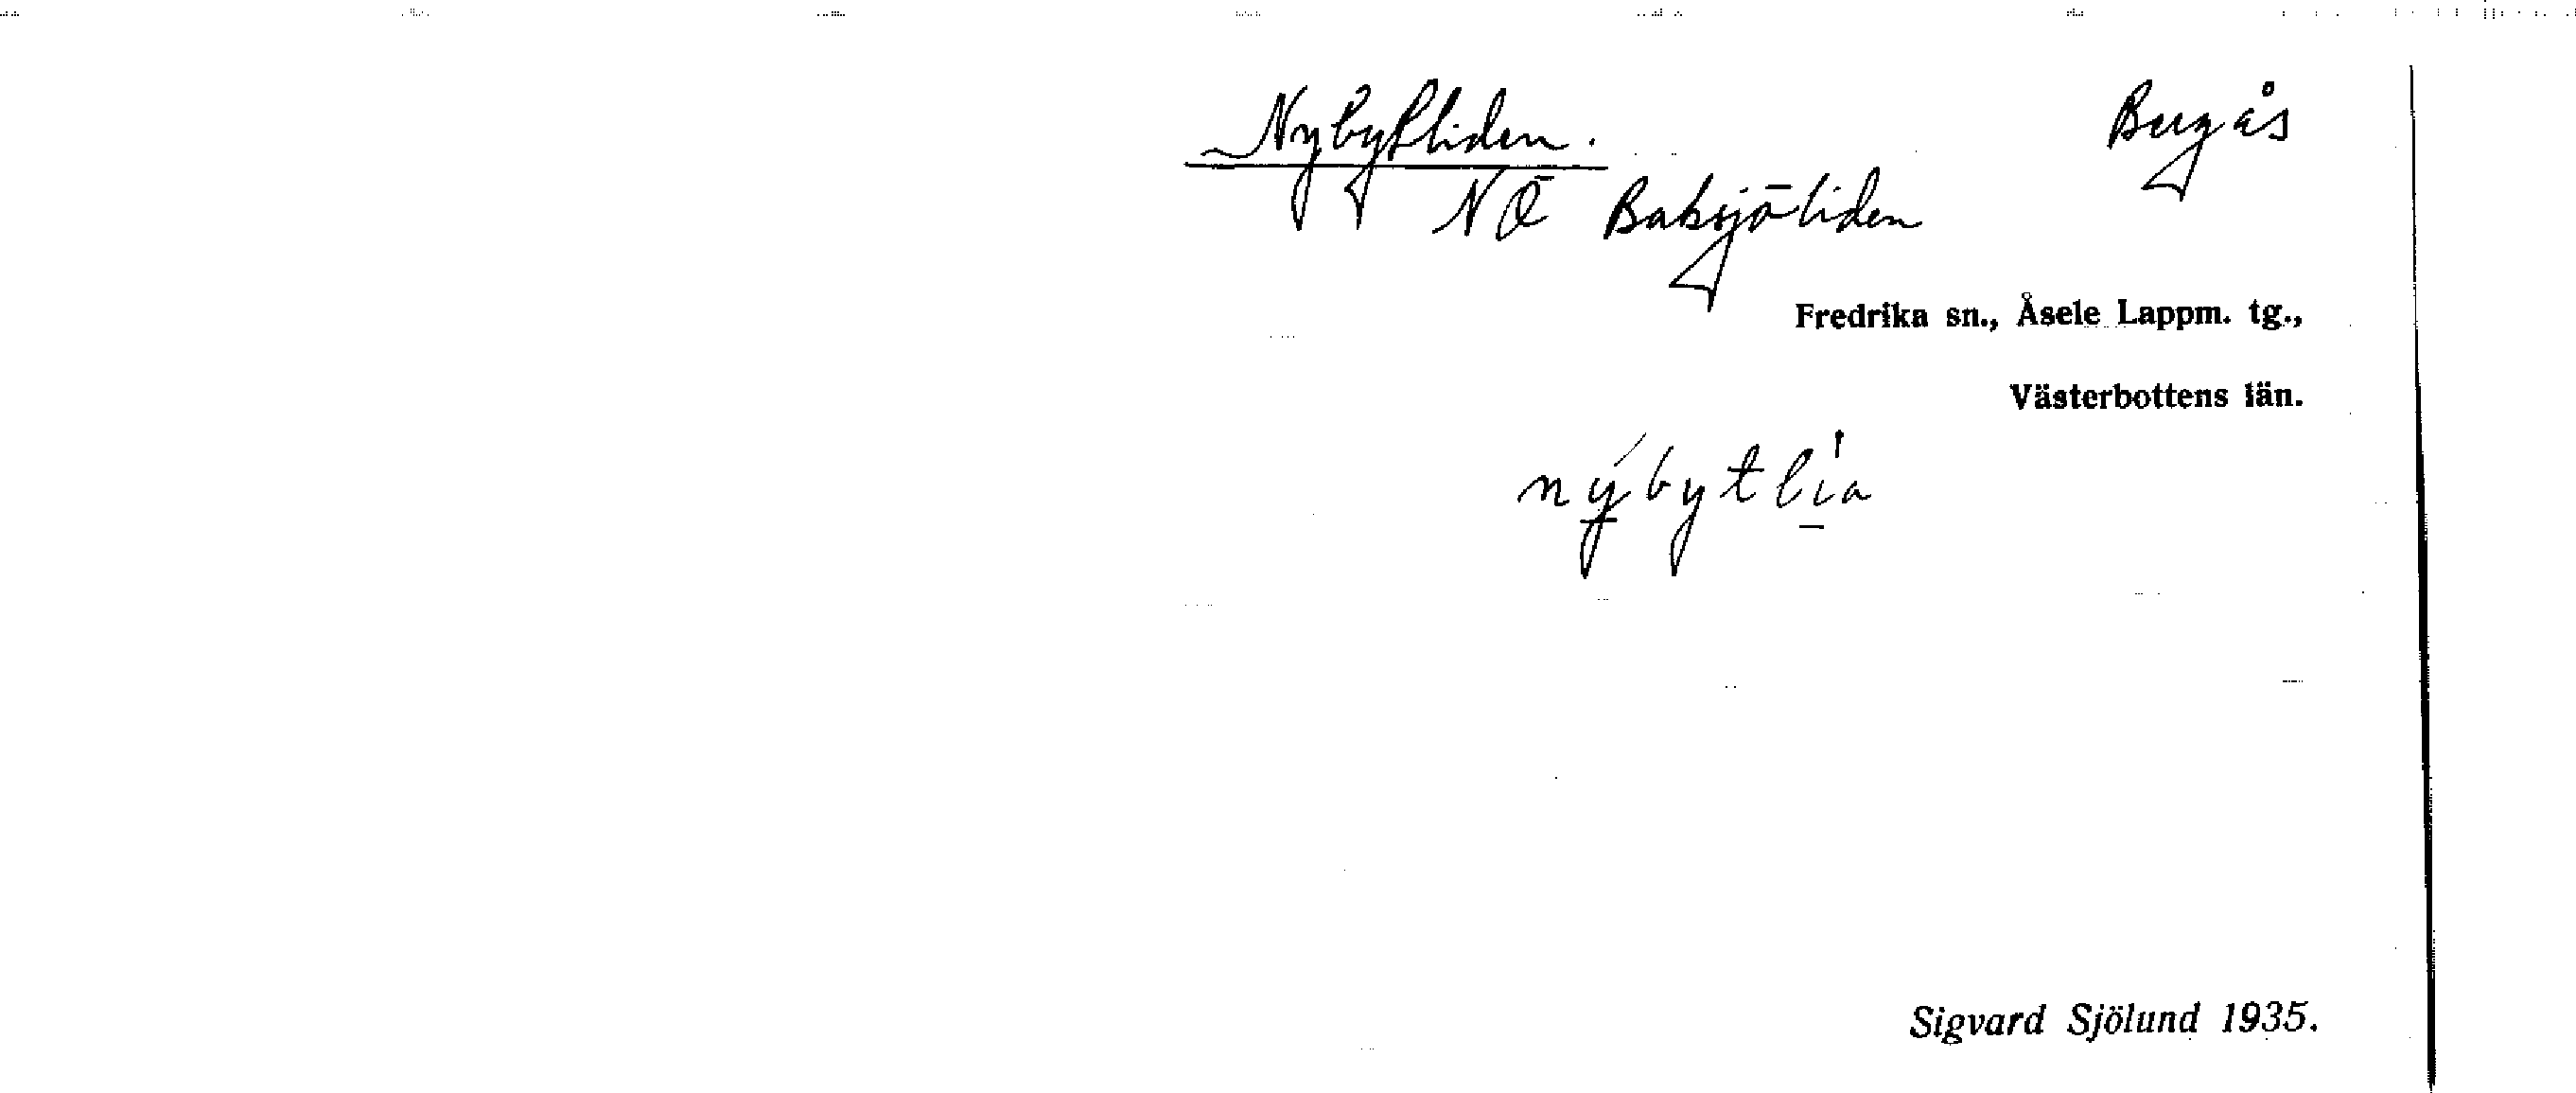 Nybytliden. Bugås
NÖ Baksjöliden
Fredrika sn., Åsele Lappm. tg.,
Västerbottens län.
nýbytlía
Sigvard Sjölund 1935.